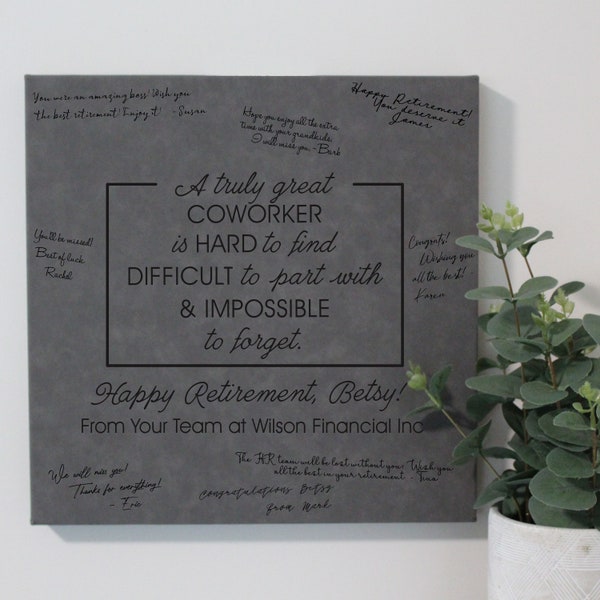 You were an amazing boss! Wish you
the best retirement! Enjoy it! - Susan
Hope you enjoy all the extra
time with your grandkids.
I will miss you - Barb
Happy Retirement!
You deserve it
James
A truly great
COWORKER
is HARD to find
DIFFICULT to part with
& IMPOSSIBLE
to forget.
You'll be missed!
Best of luck
Rachel
Congrats!
Wishing you
all the best!
Karen
Happy Retirement, Betsy!
From Your Team at Wilson Financial Inc
We will miss you!
Thanks for everything!
- Eric
The HR team will be lost without you. Wish you
all the best in your retirement - Tina
Congratulations Betsy
From Mark